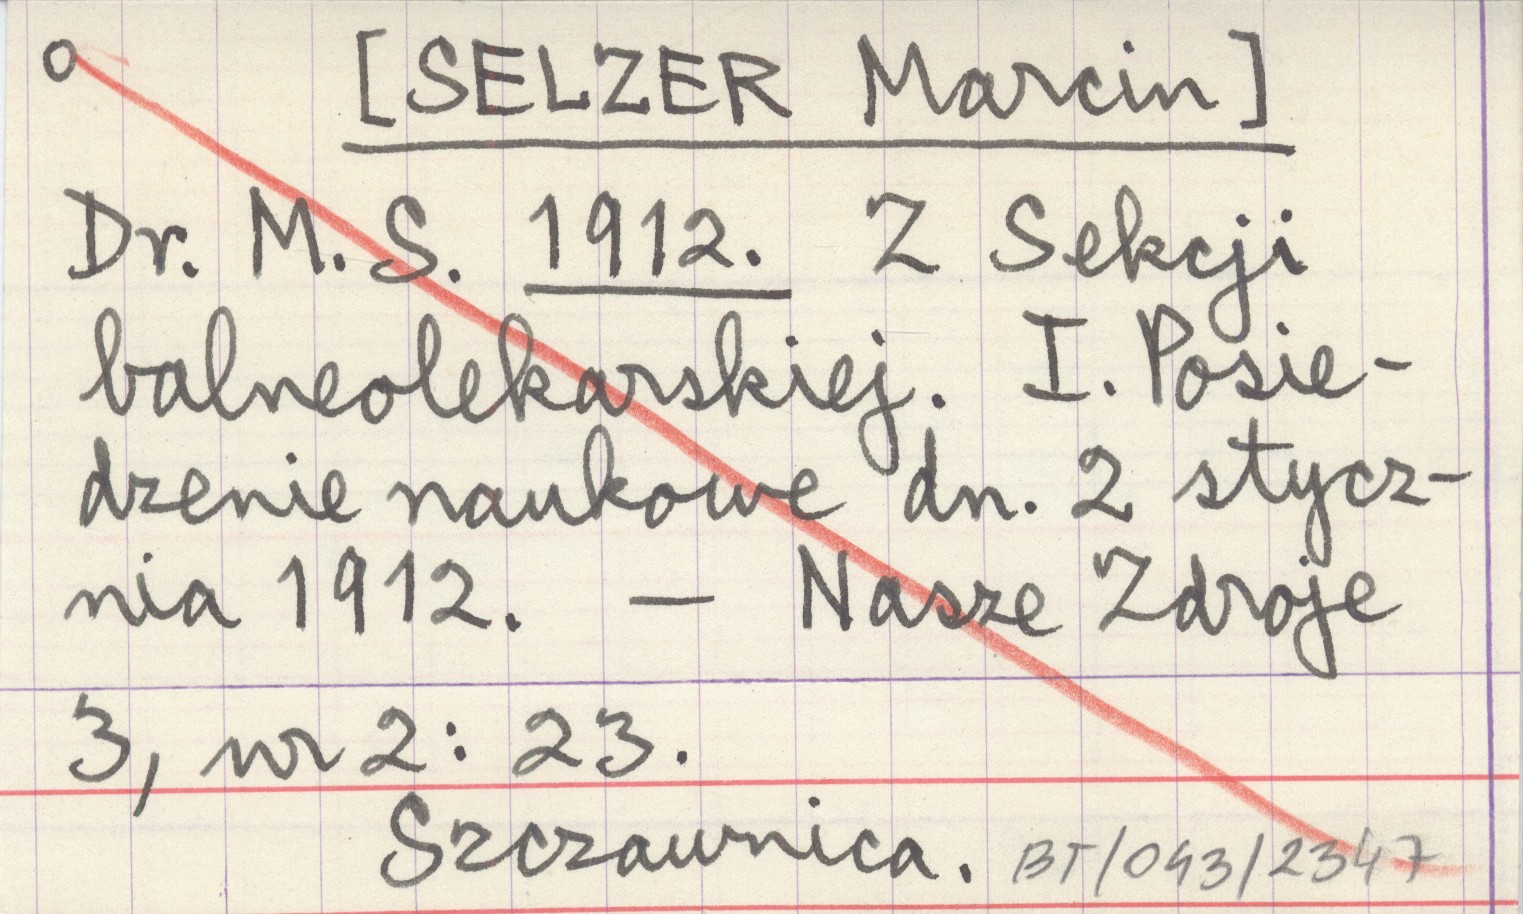 o [SELZER Marcin]
Dr. M. S. 1912. Z Sekcji
balneolekarskiej. I. Posie-
dzenie naukowe dn. 2 stycz-
nia 1912. — Nasze Zdroje
3, nr 2: 23.
Szczawnica. BT/093/2347